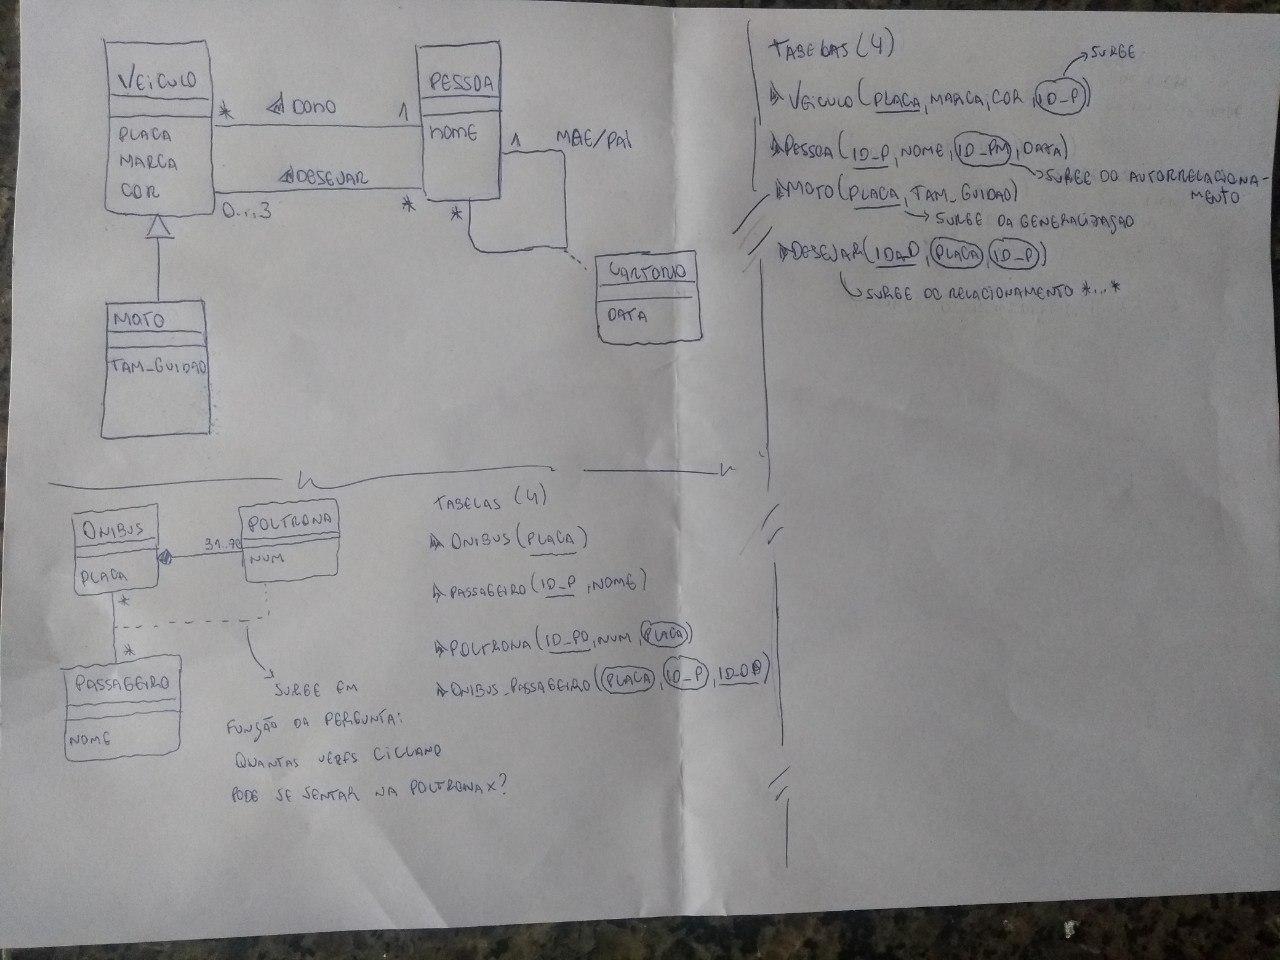 VEICULO
PLACA
MARCA
COR
* DONO 1
DESEJAR
0...3 *
PESSOA
NOME
1 MÃE/PAI
*
CARTORIO
DATA
MOTO
TAM_GUIDAO
TABELAS (4)
SURGE
VEICULO (PLACA, MARCA, COR, ID_P)
PESSOA (ID_P, NOME, ID_PM, DATA)
SURGE DO AUTORRELACIONA-
MENTO
MOTO (PLACA, TAM_GUIDAO)
SURGE DA GENERALIZAÇAO
DESEJAR (ID_D, PLACA, ID_P)
SURGE DO RELACIONAMENTO *...*
ONIBUS
PLACA
31..
POLTRONA
NUM
*
*
PASSAGEIRO
NOME
SURGE EM
FUNÇÃO DA PERGUNTA:
QUANTAS VEZES CICLANO
PODE SE SENTAR NA POLTRONA X?
TABELAS (4)
ONIBUS (PLACA)
PASSAGEIRO (ID_P, NOME)
POLTRONA (ID_PO, NUM, PLACA)
ONIBUS_PASSAGEIRO (PLACA, ID_P, )